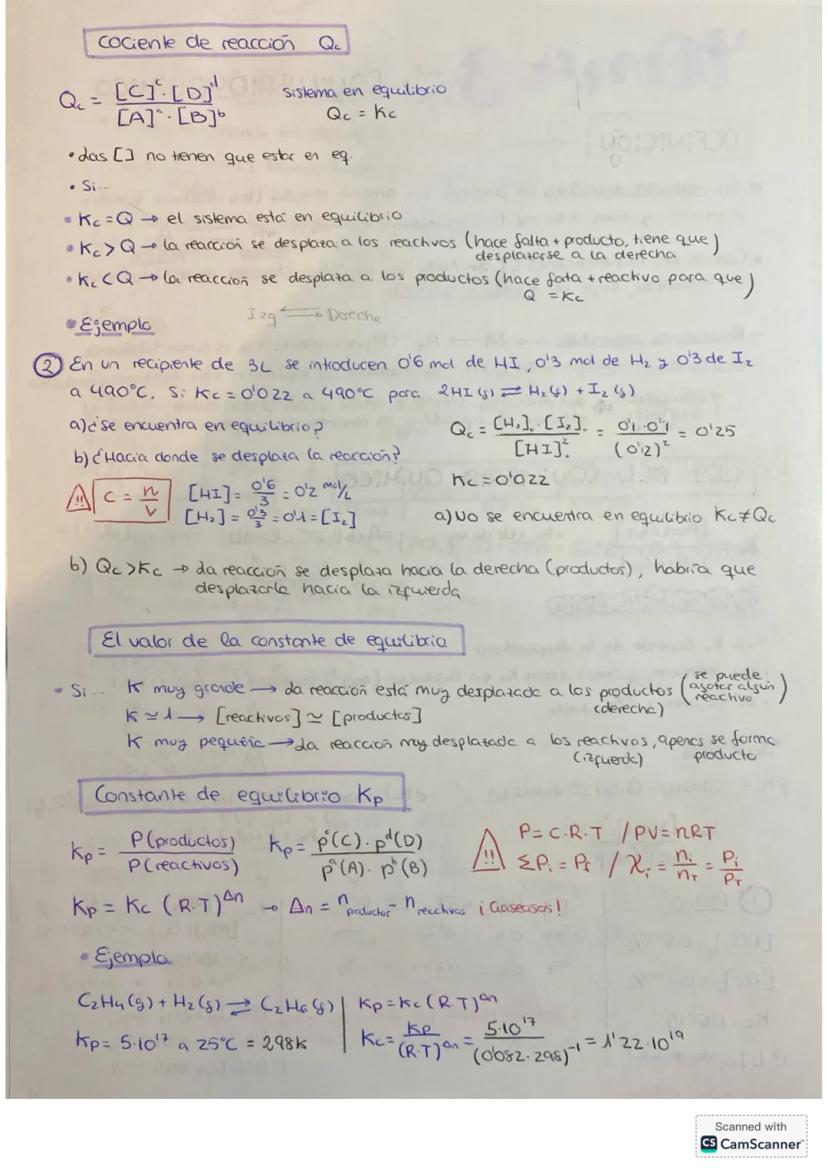 Cociente de reacción Qc
Qc = [C]ᶜ·[D]ᵈ / [A]ᵃ·[B]ᵇ
sistema en equilibrio
Qc = Kc
• Las [] no tienen que estar en eq.
• Si...
• Kc = Q → el sistema está en equilibrio
• Kc > Q → la reacción se desplaza a los reactivos (hace falta + producto, tiene que desplazarse a la derecha)
• Kc < Q → la reacción se desplaza a los productos (hace fata + reactivo para que Q = Kc)
Izq ⇄ Dereche
• Ejemplo
② En un recipiente de 3L se introducen 0'6 mol de HI, 0'3 mol de H₂ y 0'3 de I₂
a 490°C. Si Kc = 0'022 a 490°C para 2HI (g) ⇌ H₂(g) + I₂ (g)
a) ¿Se encuentra en equilibrio?
Qc = [H₂]₀·[I₂]₀ / [HI]²₀ = 0'1·0'1 / (0'2)² = 0'25
b) ¿Hacia donde se desplaza la reacción?
Kc = 0'022
!! C = n/V
[HI] = 0'6/3 = 0'2 mol/L
[H₂] = 0'3/3 = 0'1 = [I₂]
a) No se encuentra en equilibrio Kc ≠ Qc
b) Qc > Kc → La reacción se desplaza hacia la derecha (productos), habría que
desplazarla hacia la izquierda
El valor de la constante de equilibrio
• Si... K muy grande → La reacción está muy desplazada a los productos (se puede agotar algún reactivo)
(derecha)
K ≃ 1 → [reactivos] ≃ [productos]
K muy pequeña → La reacción muy desplazada a los reactivos, apenas se forma producto
(izquierda)
Constante de equilibrio Kp
Kp = P(productos) / P(reactivos)
Kp = pᶜ(C)·pᵈ(D) / pᵃ(A)·pᵇ(B)
!! P = C.R.T / PV = nRT
ΣPi = PT / χi = ni/nT = Pi/PT
Kp = Kc (R.T)^Δn → Δn = n productos - n reactivos ¡Gaseosos!
• Ejemplo
C₂H₄(g) + H₂(g) ⇌ C₂H₆(g)
Kp = Kc (R.T)^Δn
Kp = 5·10¹⁷ a 25°C = 298K
Kc = Kp / (R.T)^Δn = 5·10¹⁷ / (0'082·298)⁻¹ = 1'22·10¹⁹
Scanned with
CS CamScanner